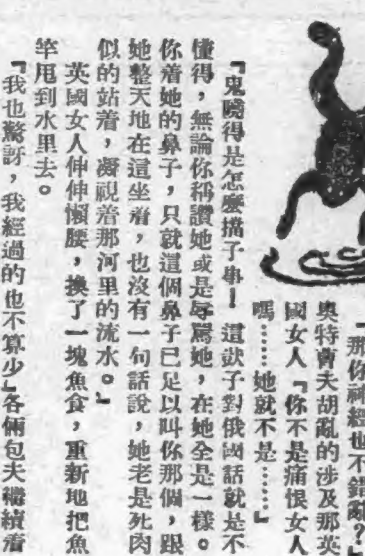 『那你神經也不錯亂？』
奧特曹夫胡亂的涉及那英
國女人『你不是痛恨女人
嗎……她就不是……』
『鬼曉得是怎麼搞子事！這獃子對俄國話就是不
懂得，無論你稱讚她或是辱罵她，在她全是一樣。
你着她的鼻子，只就這個鼻子已足以叫你那個，跟
她整天地在這坐着，也沒有一句話說，她老是死肉
似的站着，凝視着那河里的流水。』
英國女人伸伸懶腰，換了一塊魚食，重新地把魚
竿甩到水里去。
『我也驚訝，我經過的也不算少』各倆包夫繼續着